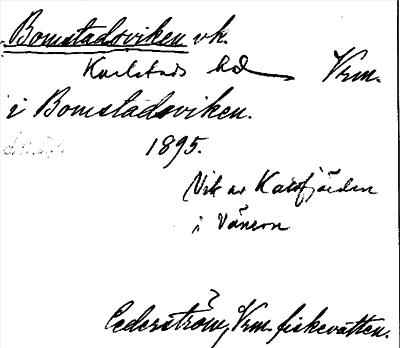 Bomstadsviken vk.
Karlstads hd Vrm.
i Bomstadsviken.
1895.
Vik av Kattfjorden
i Vänern
Cederström, Vrm. fiskevatten.